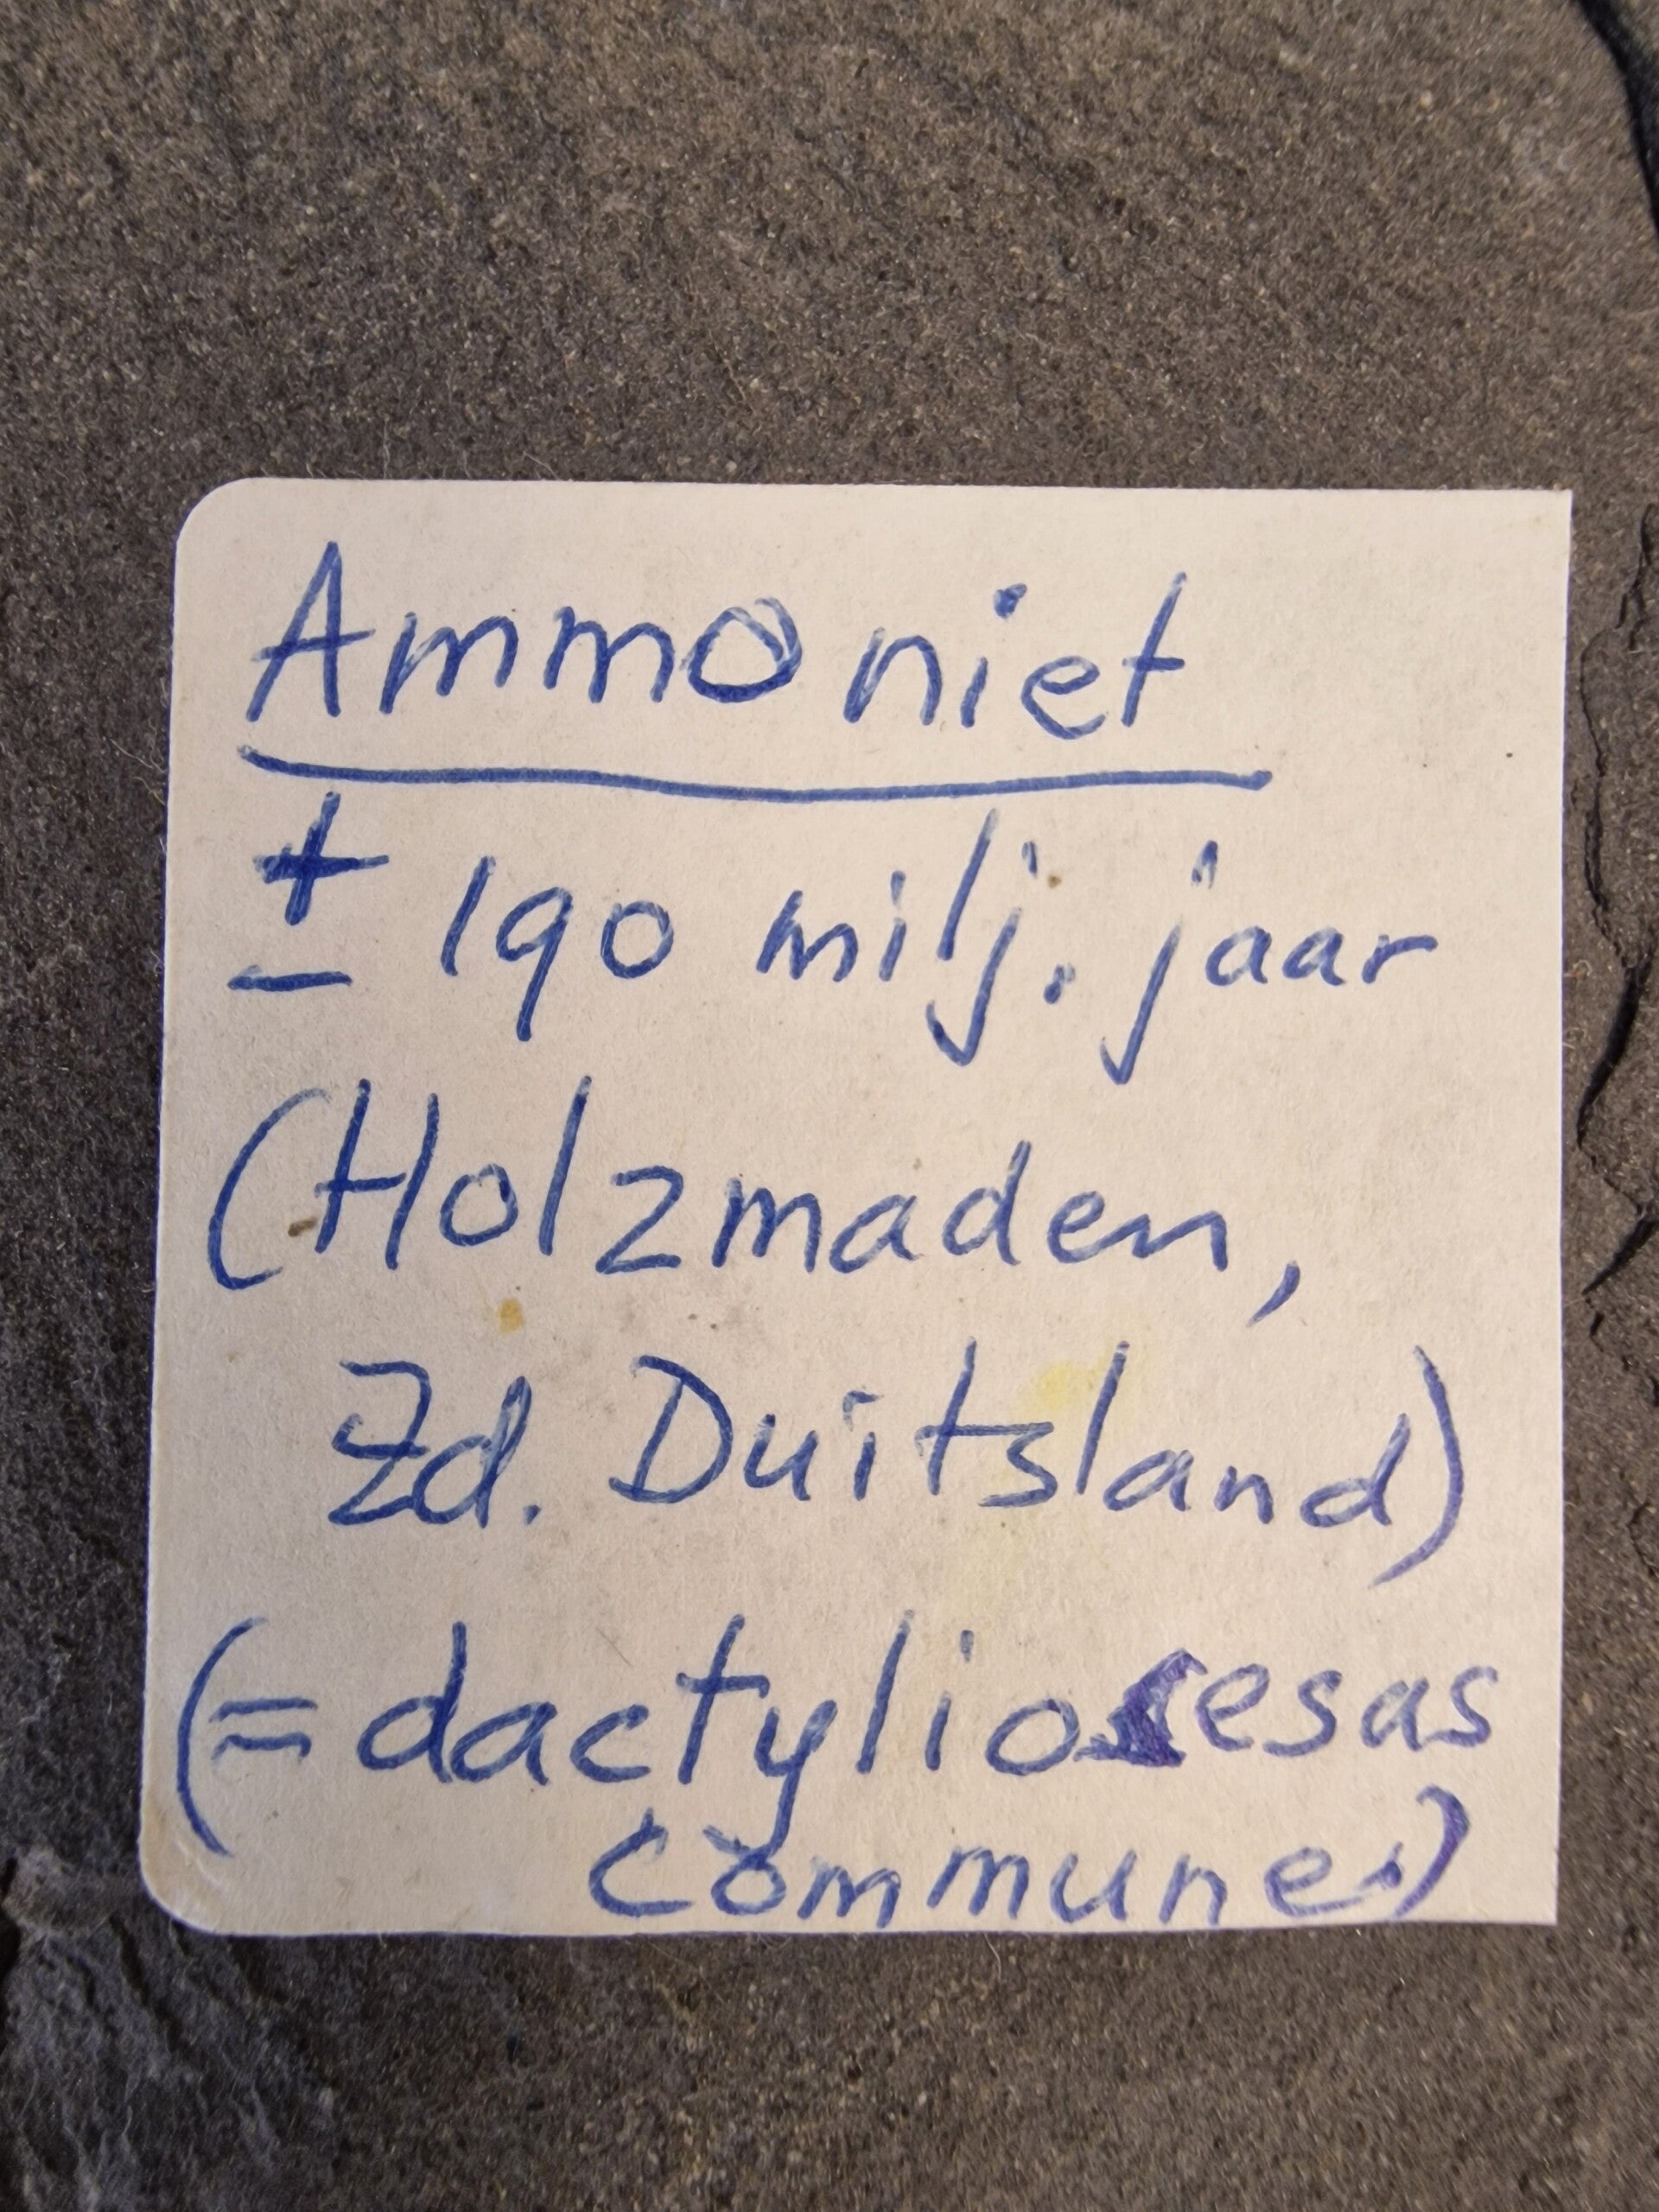 Ammoniet
± 190 milj. jaar
(Holzmaden,
Zd. Duitsland)
(= dactyliocesas
commune.)